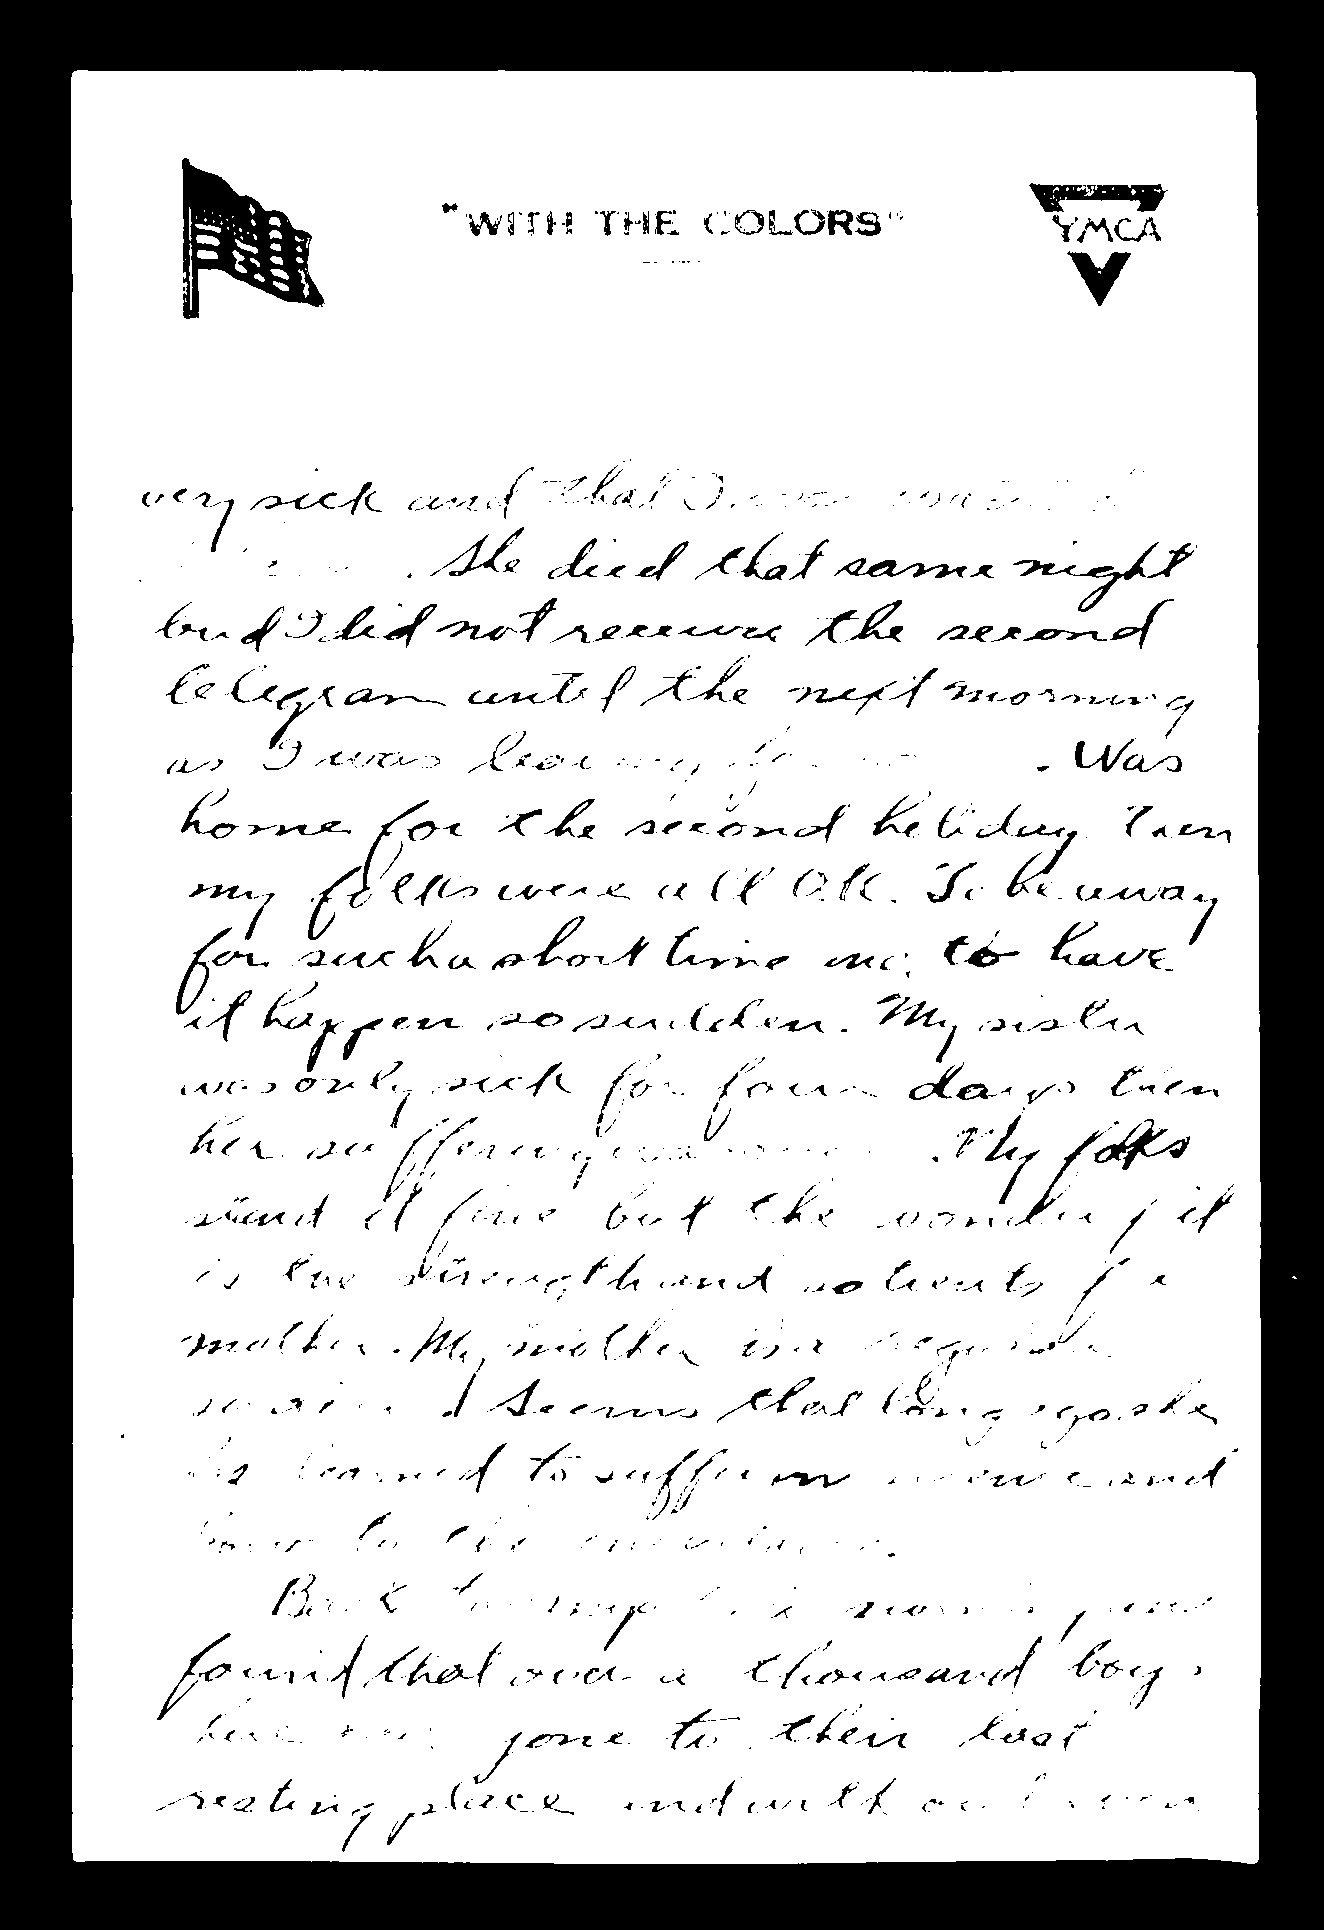 "WITH THE COLORS"
YMCA
very sick and that I
. She died that same night
but I did not receive the second
telegram until the next morning
as I was leaving for . Was
home for the second holiday then
my folks were all O.K. To be away
for such a short time and to have
it happen so sudden. My sister
was only sick for four days then
her suffering was over . My folks
stand it fine but the wonder of it
is the strength and patients of a
mother. My mother is a regular
. It seems that long ago she
has learned to suffer in silence and
bow to the
Back to camp this morning and
found that over a thousand boys
have gone to their last
resting place and with our